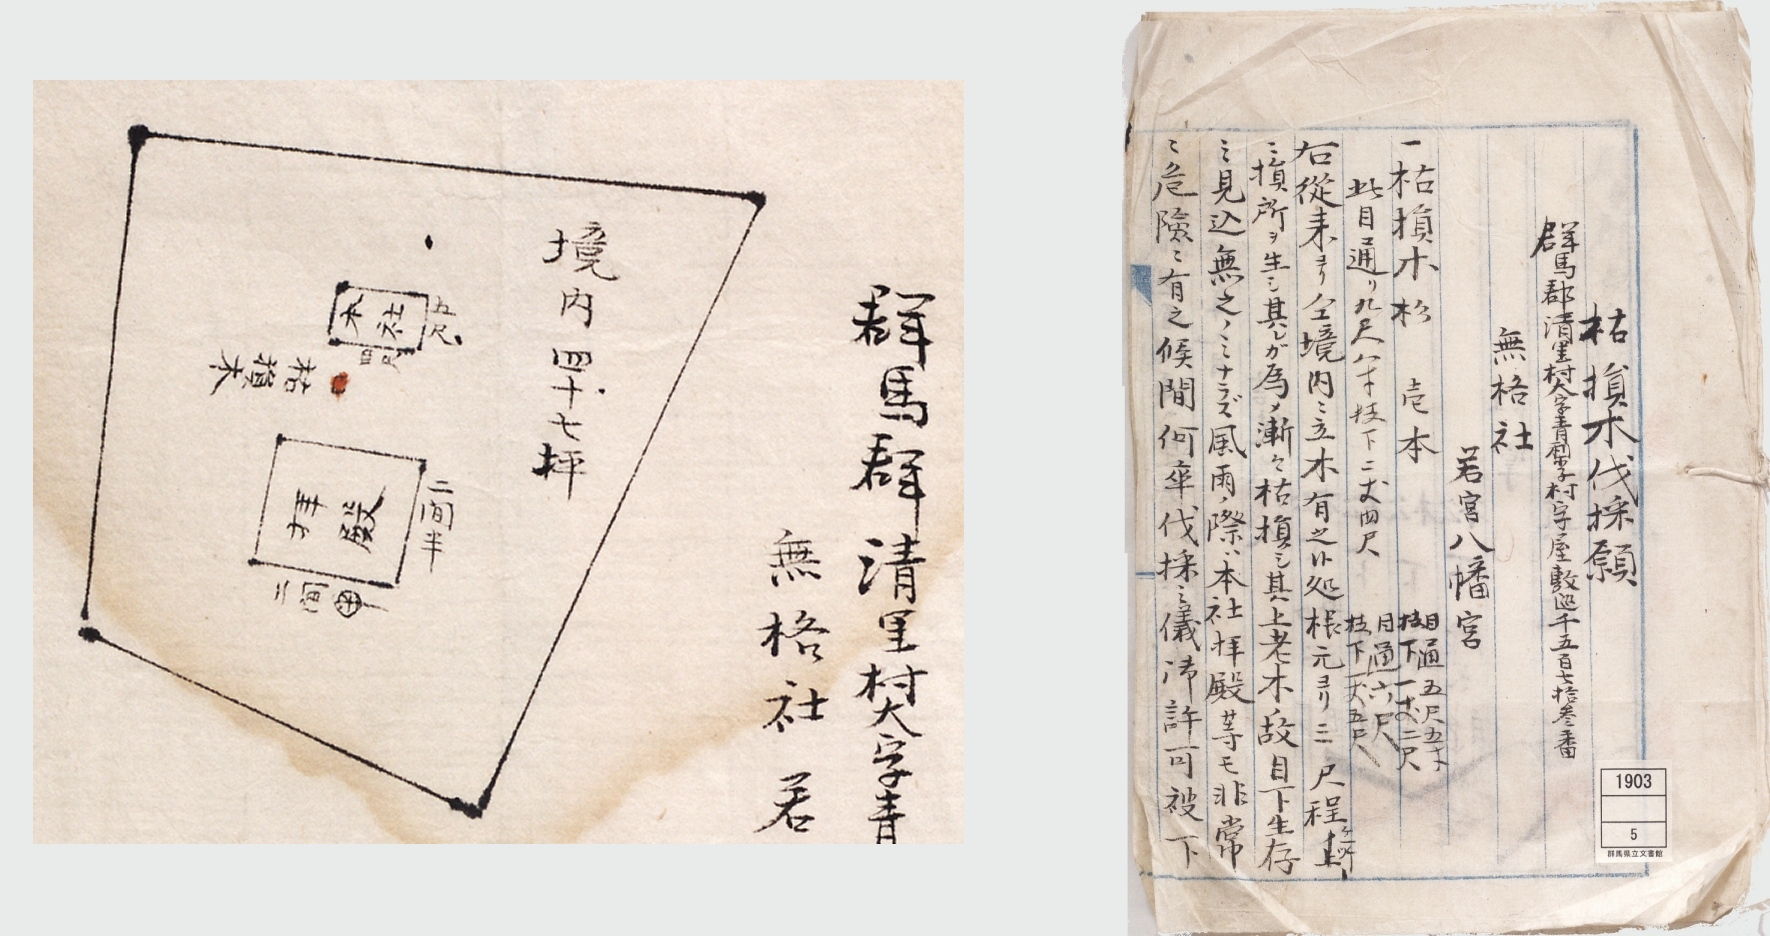 境内四十七坪
本社
五尺
四尺
枯損木
拝殿
二間半
二間
群馬群清里村大字青
無格社 若
枯損木伐採願
群馬郡清里村大字青梨子村字屋敷廻千五百七拾参番
無格社
若宮八幡宮
一枯損木 松 壱本
目通五尺五寸
枝下一丈二尺
目通六尺
枝下一丈五尺
此目通リ九尺八寸枝下二丈四尺
右從来ヨリ仝境内ニ立木有之候処根元ヨリ三尺程上
ニ損所ヲ生シ其レガ為メ漸々枯損シ其上老木故目下生存
ミ見込無之ノミナラズ風雨ノ際ハ本社拝殿等モ非常
ニ危険ニ有之候間何卒伐採之儀御許可被下
1903
5
群馬県立文書館